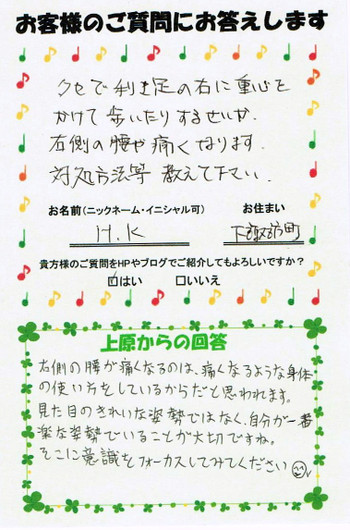 お客様のご質問にお答えします
クセで利き足の右に重心を
かけて歩いたりするせいか、
右側の腰が痛くなります。
対処方法等教えて下さい。
お名前(ニックネーム・イニシャル可)
お住まい
H.K
下諏訪町
貴方様のご質問をHPやブログでご紹介してもよろしいですか?
☑はい □いいえ
上原からの回答
右側の腰が痛くなるのは、痛くなるような身体
の使い方をしているからだと思われます。
見た目のきれいな姿勢ではなく、自分が一番
楽な姿勢でいることが大切ですね。
そこに意識をフォーカスしてみてください